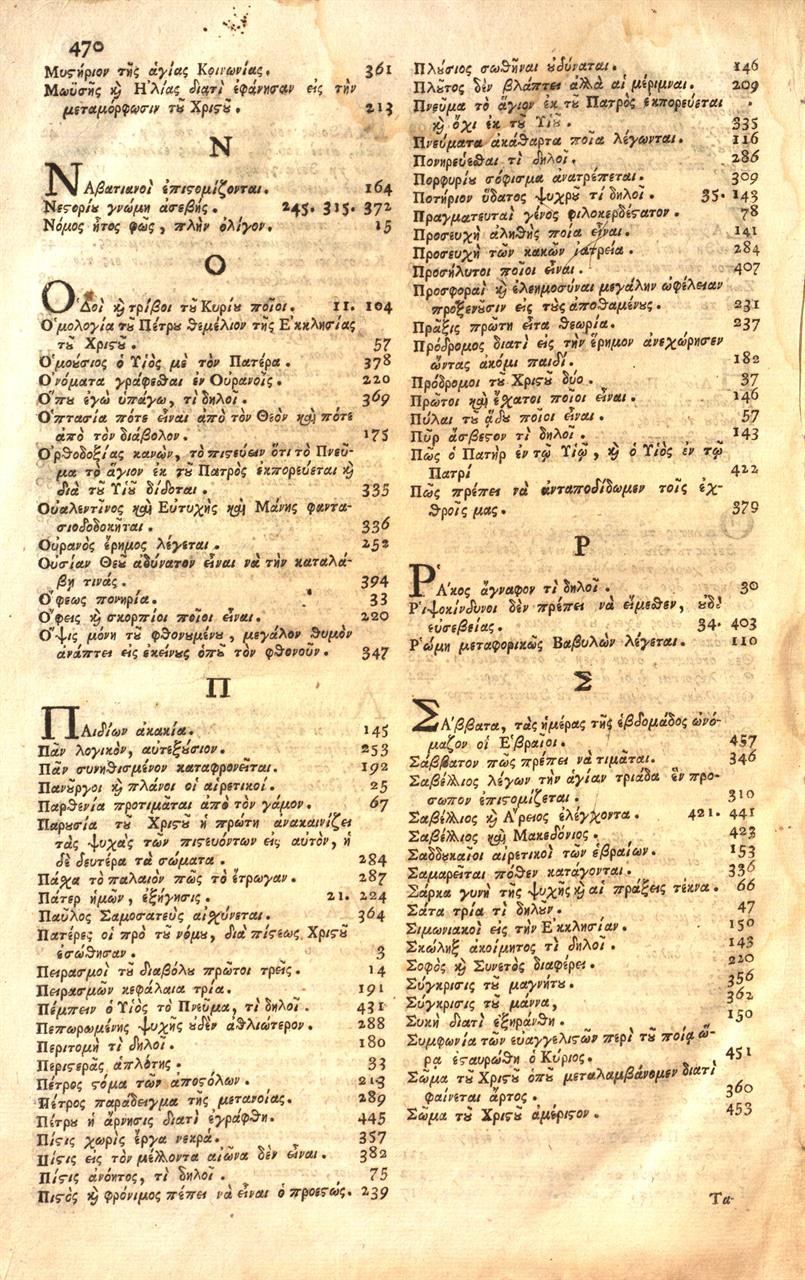 470
Μυστήριον τῆς ἁγίας Κοινωνίας. 361
Μωϋσῆς κỳ Ηλίας διατὶ ἐφάνησαν εἰς τὴν
μεταμόρφωσιν τȣ̃ Χριστȣ̃. 213
Ν
ΝΑβατιανοὶ ἐπιστομίζονται. 164
Νεστορίȣ γνώμη ἀσεβής. 245. 315. 372
Νόμος ἦτος φῶς, πλὴν ὀλίγον. 15
Ο
ὉΔοὶ κỳ τρίβοι τȣ̃ Κυρίȣ ποῖοι. 11. 104
Ὁμολογία τȣ̃ Πέτρȣ θεμέλιον τῆς Ἐκκλησίας
τȣ̃ Χριστȣ̃. 57
Ὁμούσιος ὁ Υἱὸς μὲ τὸν Πατέρα. 378
Ὀνόματα γράφεσθαι ἐν Οὐρανοῖς. 220
Ὅπȣ ἐγὼ ὑπάγω, τὶ δηλοῖ. 369
Ὀπτασία πότε εἶναι ἀπὸ τὸν Θεὸν καὶ πότε
ἀπὸ τὸν διάβολον. 175
Ὀρθοδοξίας κανὼν, τὸ πιστεύειν ὅτι τὸ Πνεῦ-
μα τὸ ἅγιον ἐκ τȣ̃ Πατρὸς ἐκπορεύεται κỳ
διὰ τȣ̃ Υἱȣ̃ δίδοται. 335
Οὐαλεντῖνος καὶ Εὐτυχὴς καὶ Μάνης φαντα-
σιοδοκῆται. 336
Οὐρανὸς ἔρημος λέγεται. 252
Οὐσίαν Θεȣ̃ ἀδύνατον εἶναι νὰ τὴν καταλά-
βῃ τινάς. 394
Ὄφεως πονηρία. 33
Ὄφεις κỳ σκορπίοι ποῖοι εἶναι. 220
Ὄψις μόνη τȣ̃ φθονȣμένȣ, μεγάλον θυμὸν
ἀνάπτει εἰς ἐκείνȣς ὁπȣ̃ τὸν φθονοῦν. 347
Π
ΠΑιδίων ἀκακία. 145
Πᾶν λογικὸν, αὐτεξȣ́σιον. 253
Πᾶν συνηθισμένον καταφρονεῖται. 192
Πανȣ̃ργοι κỳ πλάνοι οἱ αἱρετικοί. 25
Παρθενία προτιμᾶται ἀπὸ τὸν γάμον. 67
Παρȣσία τȣ̃ Χριστȣ̃ ἡ πρώτη ἀνακαινίζει
τὰς ψυχὰς τῶν πιστευόντων εἰς αὐτὸν, ἡ
δὲ δευτέρα τὰ σώματα. 284
Πάσχα τὸ παλαιὸν πῶς τὸ ἔτρωγαν. 287
Πάτερ ἡμῶν, ἐξήγησις. 21. 224
Παῦλος Σαμοσατεὺς αἰσχύνεται. 364
Πατέρες οἱ πρὸ τȣ̃ νόμȣ, διὰ πίστεως Χριστȣ̃
ἐσώθησαν. 3
Πειρασμοὶ τȣ̃ διαβόλȣ πρῶτοι τρεῖς. 14
Πειρασμῶν κεφάλαια τρία. 191
Πέμπειν ὁ Υἱὸς τὸ Πνεῦμα, τὶ δηλοῖ. 431
Πεπωρωμένης ψυχῆς ȣ̓δὲν ἀθλιώτερον. 288
Περιτομὴ τὶ δηλοῖ. 180
Περιστερᾶς ἁπλότης. 33
Πέτρος στόμα τῶν ἀποστόλων. 213
Πέτρος παράδειγμα τῆς μετανοίας. 289
Πέτρȣ ἡ ἄρνησις διατὶ ἐγράφθη. 445
Πίστις χωρὶς ἔργα νεκρά. 357
Πίστις εἰς τὸν μέλλοντα αἰῶνα δὲν εἶναι. 382
Πίστις ἀνόητος, τὶ δηλοῖ. 75
Πιστὸς κỳ φρόνιμος πέπει νὰ εἶναι ὁ προεστώς. 239
Πλȣ́σιος σωθῆναι ȣ̓ δύναται. 146
Πλȣ̃τος δὲν βλάπτει ἀλλὰ αἱ μέριμναι. 209
Πνεῦμα τὸ ἅγιον ἐκ τȣ̃ Πατρὸς ἐκπορεύεται
κỳ ὄχι ἐκ τȣ̃ Υἱȣ̃. 335
Πνεύματα ἀκάθαρτα ποῖα λέγωνται. 116
Πονηρεύεσθαι τὶ δηλοῖ. 286
Πορφυρίȣ σόφισμα ἀνατρέπεται. 309
Ποτήριον ὕδατος ψυχρȣ̃ τί δηλοῖ. 35. 143
Πραγματευταὶ γένος φιλοκερδέστατον. 78
Προσευχὴ ἀληθὴς ποία εἶναι. 141
Προσευχὴ τῶν κακῶν ἰατρεία. 284
Προσήλυτοι ποῖοι εἶναι. 407
Προσφοραὶ κỳ ἐλεημοσύναι μεγάλην ὠφέλειαν
προξενȣ̃σιν εἰς τȣ̀ς ἀποθαμένȣς. 231
Πρᾶξις πρώτη εἶτα θεωρία. 237
Πρόδρομος διατὶ εἰς τὴν ἔρημον ἀνεχώρησεν
ὤντας ἀκόμι παιδί. 182
Πρόδρομοι τȣ̃ Χριστȣ̃ δύο. 37
Πρῶτοι καὶ ἔσχατοι ποῖοι εἶναι. 146
Πύλαι τȣ̃ ᾅδȣ ποῖοι εἶναι. 57
Πῦρ ἄσβεστον τὶ δηλοῖ. 143
Πῶς ὁ Πατὴρ ἐν τῷ Υἱῷ, κỳ ὁ Υἱὸς ἐν τῷ
Πατρί 422
Πῶς πρέπει νὰ ἀνταποδίδωμεν τοῖς ἐχ-
θροῖς μας. 379
Ρ
ῬΑκος ἄγναφον τὶ δηλοῖ. 30
Ῥιψοκίνδυνοι δὲν πρέπει νὰ εἴμεσθεν, ȣ̓δὲ
εὐσεβείας. 34. 403
Ῥώμη μεταφορικῶς Βαβυλὼν λέγεται. 110
Σ
ΣΑββατα, τὰς ἡμέρας τῆς ἑβδομάδος ὠνό-
μαζον οἱ Ἑβραῖοι. 457
Σάββατον πῶς πρέπει νὰ τιμᾶται. 346
Σαβέλλιος λέγων τὴν ἁγίαν τριάδα ἓν πρό-
σωπον ἐπιστομίζεται. 310
Σαβέλλιος κỳ Ἄρειος ἐλέγχονται. 421. 441
Σαβέλλιος καὶ Μακεδόνιος. 423
Σαδδουκαῖοι αἱρετικοὶ τῶν ἑβραίων. 153
Σαμαρεῖται πόθεν κατάγονται. 336
Σάρκα γυνὴ τῆς ψυχῆς κỳ αἱ πράξεις τέκνα. 66
Σάτα τρία τὶ δηλȣ̃ν. 47
Σιμωνιακοὶ εἰς τὴν Ἐκκλησίαν. 150
Σκώληξ ἀκοίμητος τὶ δηλοῖ. 143
Σοφὸς κỳ Συνετὸς διαφέρει. 220
Σύγκρισις τȣ̃ μαγνήτȣ. 356
Σύγκρισις τȣ̃ μάννα, 362
Συκῆ διατὶ ἐξηράνθη. 150
Συμφωνία τῶν εὐαγγελιστῶν περὶ τȣ̃ ποίᾳ ὥ-
ρᾳ ἐσταυρώθη ὁ Κύριος. 451
Σῶμα τȣ̃ Χριστȣ̃ ὁπȣ̃ μεταλαμβάνομεν διατὶ
φαίνεται ἄρτος. 360
Σῶμα τȣ̃ Χριστȣ̃ ἀμέριστον. 453
Τα-